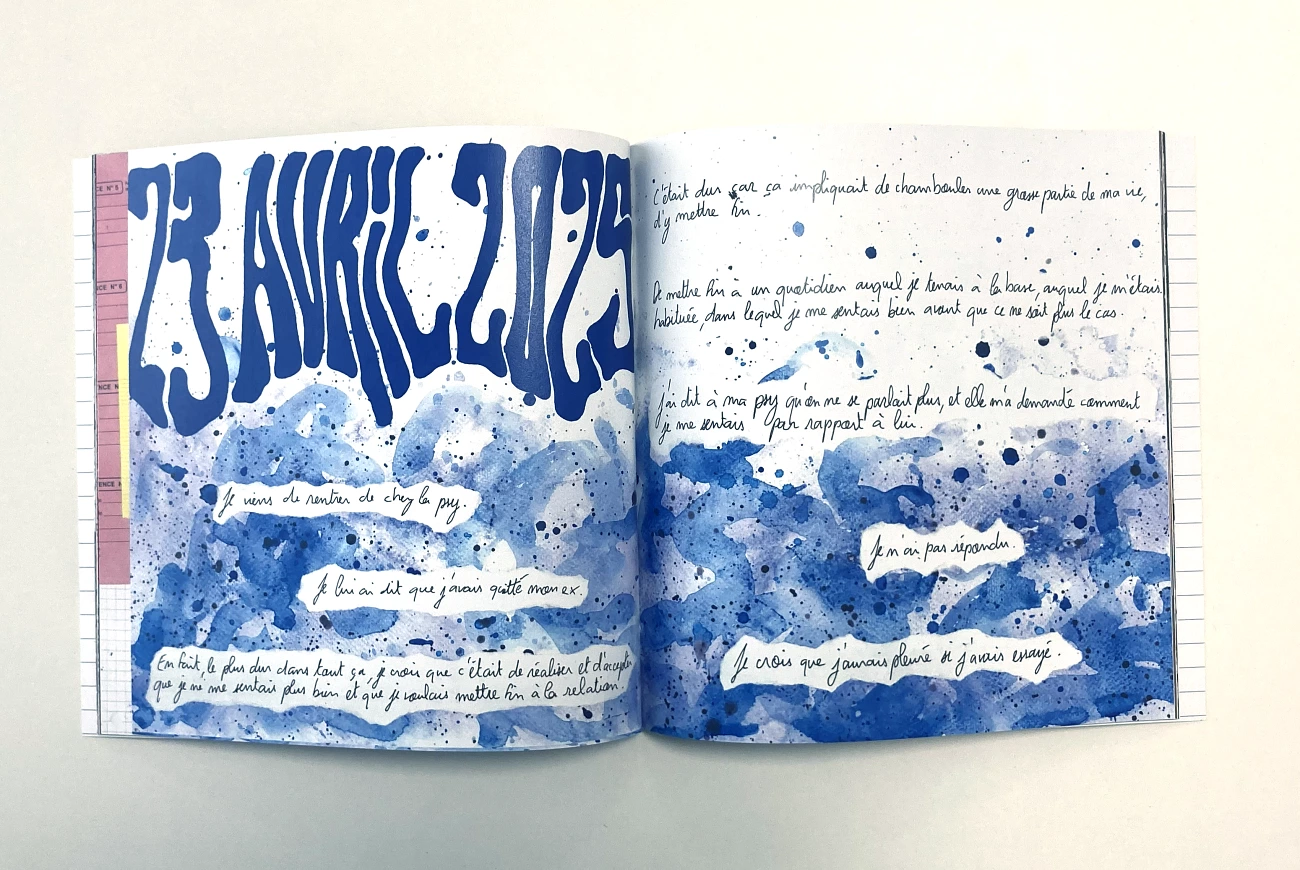 CE N° 5
CE N° 6
ENCE N
ENCE N
23 AVRIL 2025
Je viens de rentrer de chez la psy.
Je lui ai dit que j'avais quitté mon ex.
En fait, le plus dur dans tout ça, je crois que c'était de réaliser et d'accepter
que je ne me sentais plus bien et que je voulais mettre fin à la relation.
C'était dur car ça impliquait de chambouler une grosse partie de ma vie,
d'y mettre fin.
De mettre fin à un quotidien auquel je tenais à la base, auquel je m'étais
habituée, dans lequel je me sentais bien avant que ce ne soit plus le cas.
J'ai dit à ma psy qu'on ne se parlait plus, et elle m'a demandé comment
je me sentais par rapport à lui.
Je n'ai pas répondu.
Je crois que j'aurais pleuré si j'avais essayé.